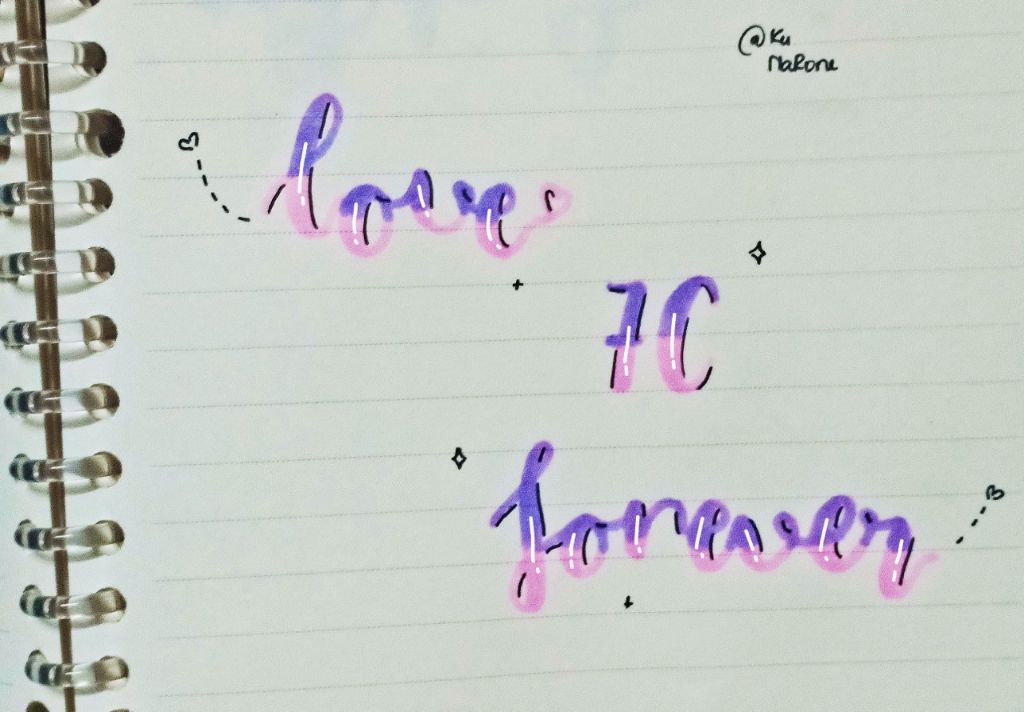 @Ku
MaRone
love
7C
forever